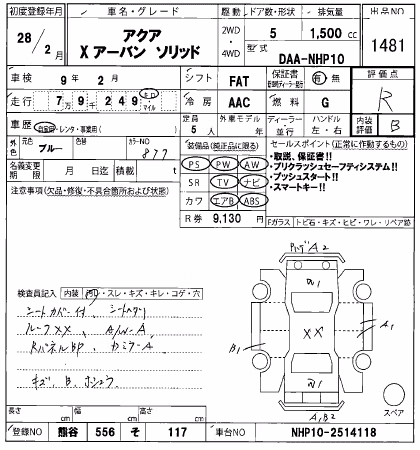 初度登録年月 車名・グレード 駆動 ドア数・形状 排気量 出品NO
28/2月 アクア X アーバン ソリッド 2WD・4WD 5 1,500 cc 1481
型式 DAA-NHP10
車検 9年 2月 シフト FAT 保証書 有・無 評価点 R
走行 7万9千249 キロ・マイル 冷房 AAC 燃料 G
車歴 自家用・レンタ・事業用( ) 定員 5人 外車モデル 年 ディーラー・並行 ハンドル 左・右 内装評価 B
外色 元色 ブルー 色替 カラーNO 877
名義変更期限 月 日迄 積載 t
装備品(純正品に限る) セールスポイント(正常に作動するもの)
PS PW AW ・取説、保証書!!
SR TV ナビ ・プリクラッシュセーフティシステム!!
カワ エアB ABS ・プッシュスタート!!
・スマートキー!!
R券 9,130 円
注意事項(欠品・修復・不具合箇所および状態)
Fガラス トビ石・キズ・ヒビ・ワレ・リペア跡
検査員記入 内装 汚・スレ・キズ・キレ・コゲ・穴
シートカバー付、
ルーフXX、A/W-A、
キズ、B、
A2
W1
XX
B1
A1
W1
A,B2
スペア
長さ cm 幅 cm 高さ cm
登録NO 熊谷 556 そ 117 車台NO NHP10-2514118